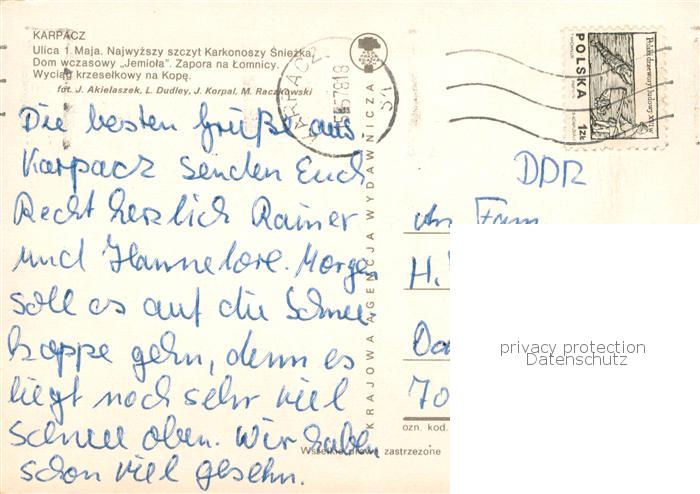 KARPACZ
Ulica 1 Maja. Najwyższy szczyt Karkonoszy Śnieżka.
Dom wczasowy „Jemioła”. Zapora na Łomnicy.
Wyciąg krzesełkowy na Kopę.
fot. J. Akielaszek, L. Dudley, J. Korpal, M. Raczkowski
Die besten Grüße aus
Karpacz senden Euch
Recht herzlich Rainer
und Hannelore. Morgen
soll es auf die Schnee
koppe gehn, denn es
liegt noch sehr viel
Schnee oben. Wir haben
schon viel gesehn.
KRAJOWA AGENCJA WYDAWNICZA
KARPACZ
POLSKA
1zł
DDR
An Fam
H.
70
ozn. kod.
Wszelkie prawa zastrzeżone
privacy protection
Datenschutz